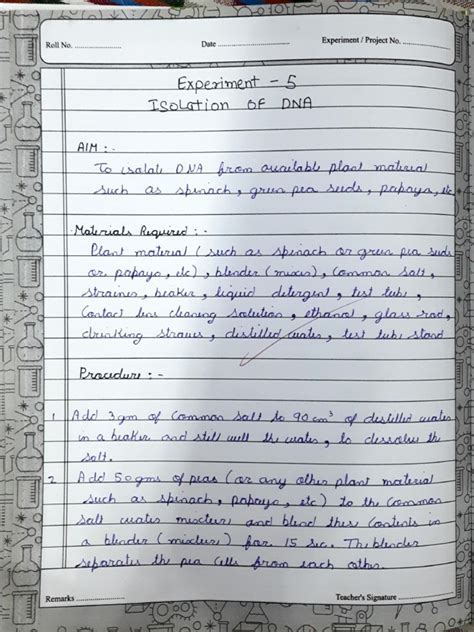 Roll No. ........................ Date .............................. Experiment / Project No. ....................
Experiment - 5
ISOLATION OF DNA
AIM : -
To isalate DNA from available plant material
such as spinach, green pea seeds, papaya, etc
Materials Required : -
Plant material ( such as spinach or green pea seeds
or papaya, etc) , blender (mixer) , Common salt ,
strainer, beaker , liquid detergent , test tube ,
Contact lens cleaning solution , ethanol , glass rod,
drinking straws , distilled water, test tube stand
Procedure : -
1 Add 3gm of Common salt to 90 cm³ of distilled water
in a beaker and still well the water , to dissolve the
salt.
2. Add 50gms of peas (or any other plant material
such as spinach, papaya, etc) to the common
salt water mixture and blend these contents in
a blender (mixture) for 15 sec. The blender
separates the pea cells from each other.
Remarks .................... Teacher's Signature ....................